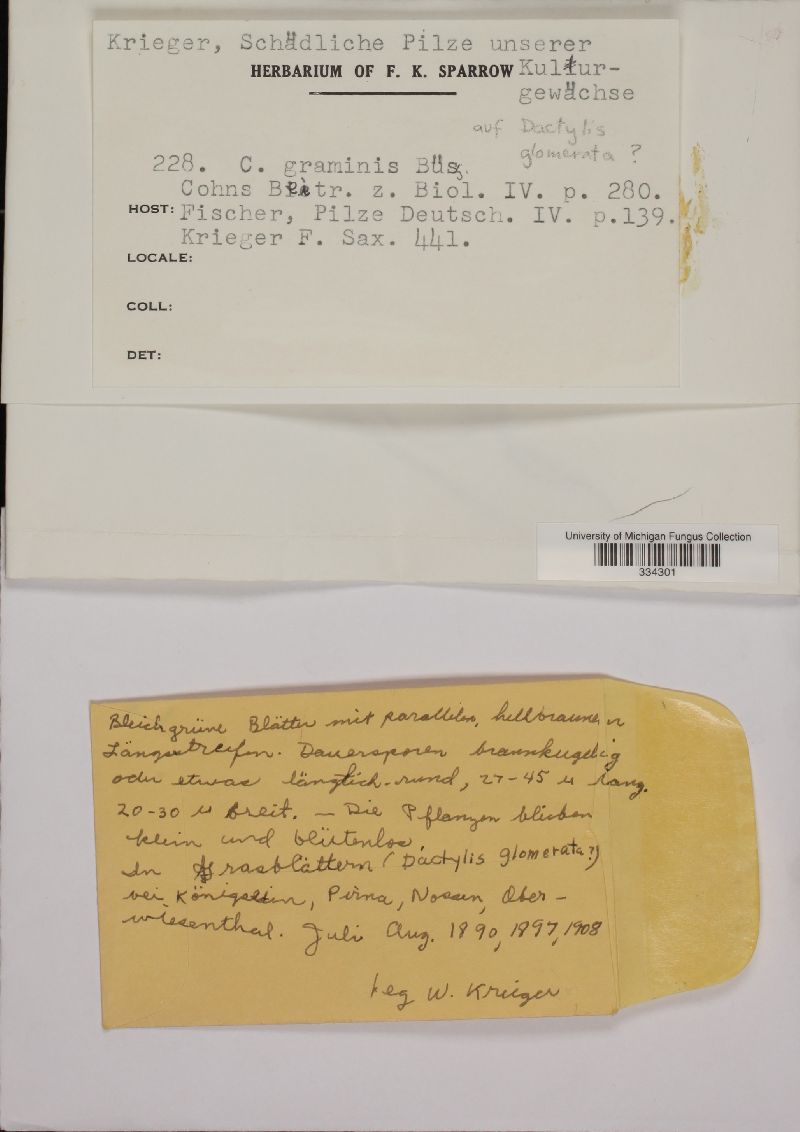 Krieger, Schädliche Pilze unserer
HERBARIUM OF F. K. SPARROW Kultur-
gewächse
auf Dactylis
glomerata ?
228. C. graminis Büsg.
Cohns Beitr. z. Biol. IV. p. 280.
HOST: Fischer, Pilze Deutsch. IV. p.139.
Krieger F. Sax. 441.
LOCALE:
COLL:
DET:
University of Michigan Fungus Collection
334301
Bleichgrüne Blätter mit parallelen, hellbraunen
Längsstreifen. Dauersporen braunkugelig
oder etwas länglich-rund, 27-45 µ lang.
20-30 µ breit. — Die Pflanzen blieben
klein und blütenlos.
In Grasblättern (Dactylis glomerata?)
bei Königstein, Pirna, Nossen, Ober-
wiesenthal. Juli Aug. 1890, 1897, 1908
leg W. Krieger